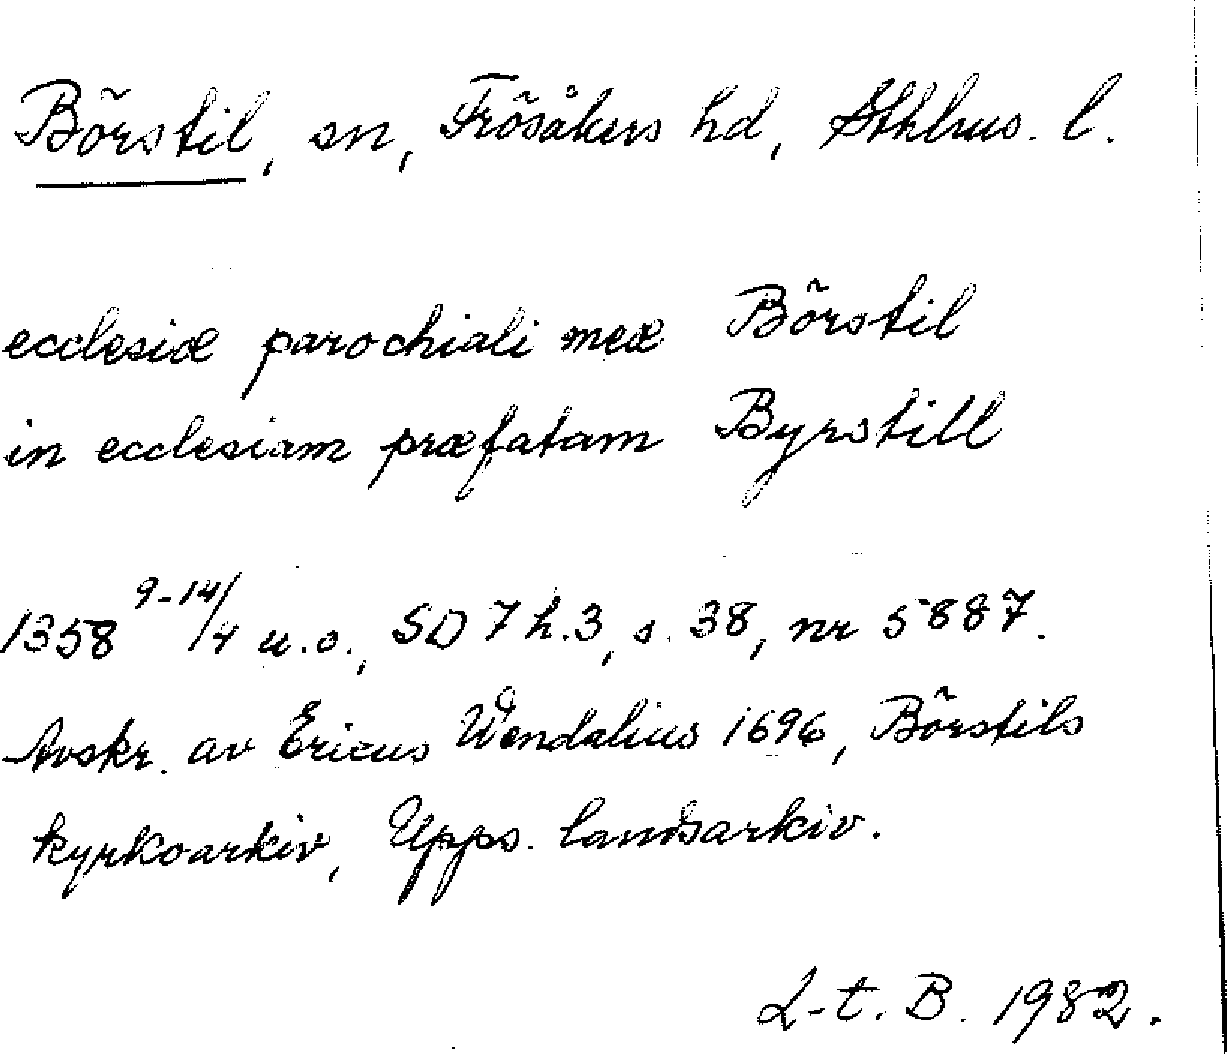 Börstil, sn, Frösåkers hd, Sthlms. l.
ecclesiæ parochiali meæ Börstil
in ecclesiam præfatam Byrstill
1358 9-14/4 u.o., SD 7 h.3, s. 38, nr 5887.
Avskr. av Ericus Wendalius 1696, Börstils
kyrkoarkiv, Upps. landsarkiv.
L-t. B. 1982.